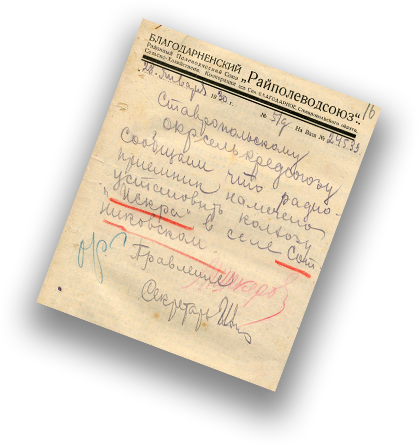 16
БЛАГОДАРНЕНСКИЙ „Райполеводсоюз“.
Районный Полеводческий Союз
Сельско-Хозяйствен. Кооперации
БЛАГОДАРНОЕ, Ставропольского округа.
28 января 1930 г. № 51д На Ваш № 24533
Ставропольскому
окрсельхозкредсоюзу
Сообщаем что радио-
приемник намечено
установить колхозу
"Искра" в селе Сот
никовском
Правление
Секретарь